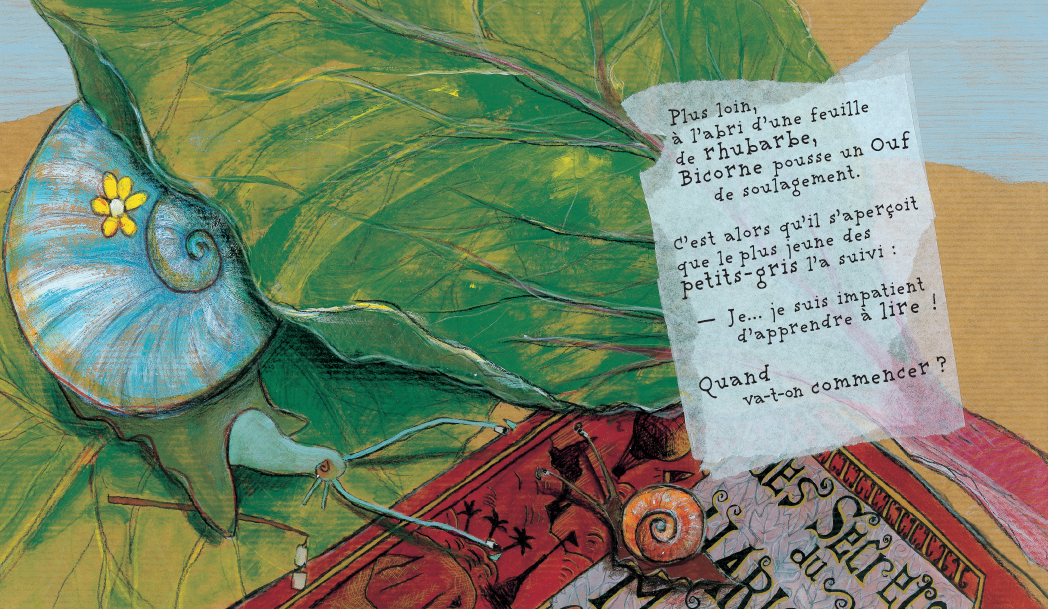 Plus loin,
à l'abri d'une feuille
de rhubarbe,
Bicorne pousse un Ouf
de soulagement.
C'est alors qu'il s'aperçoit
que le plus jeune des
petits-gris l'a suivi :
— Je... je suis impatient
d'apprendre à lire !
Quand
va-t-on commencer ?
Les Secrets
du